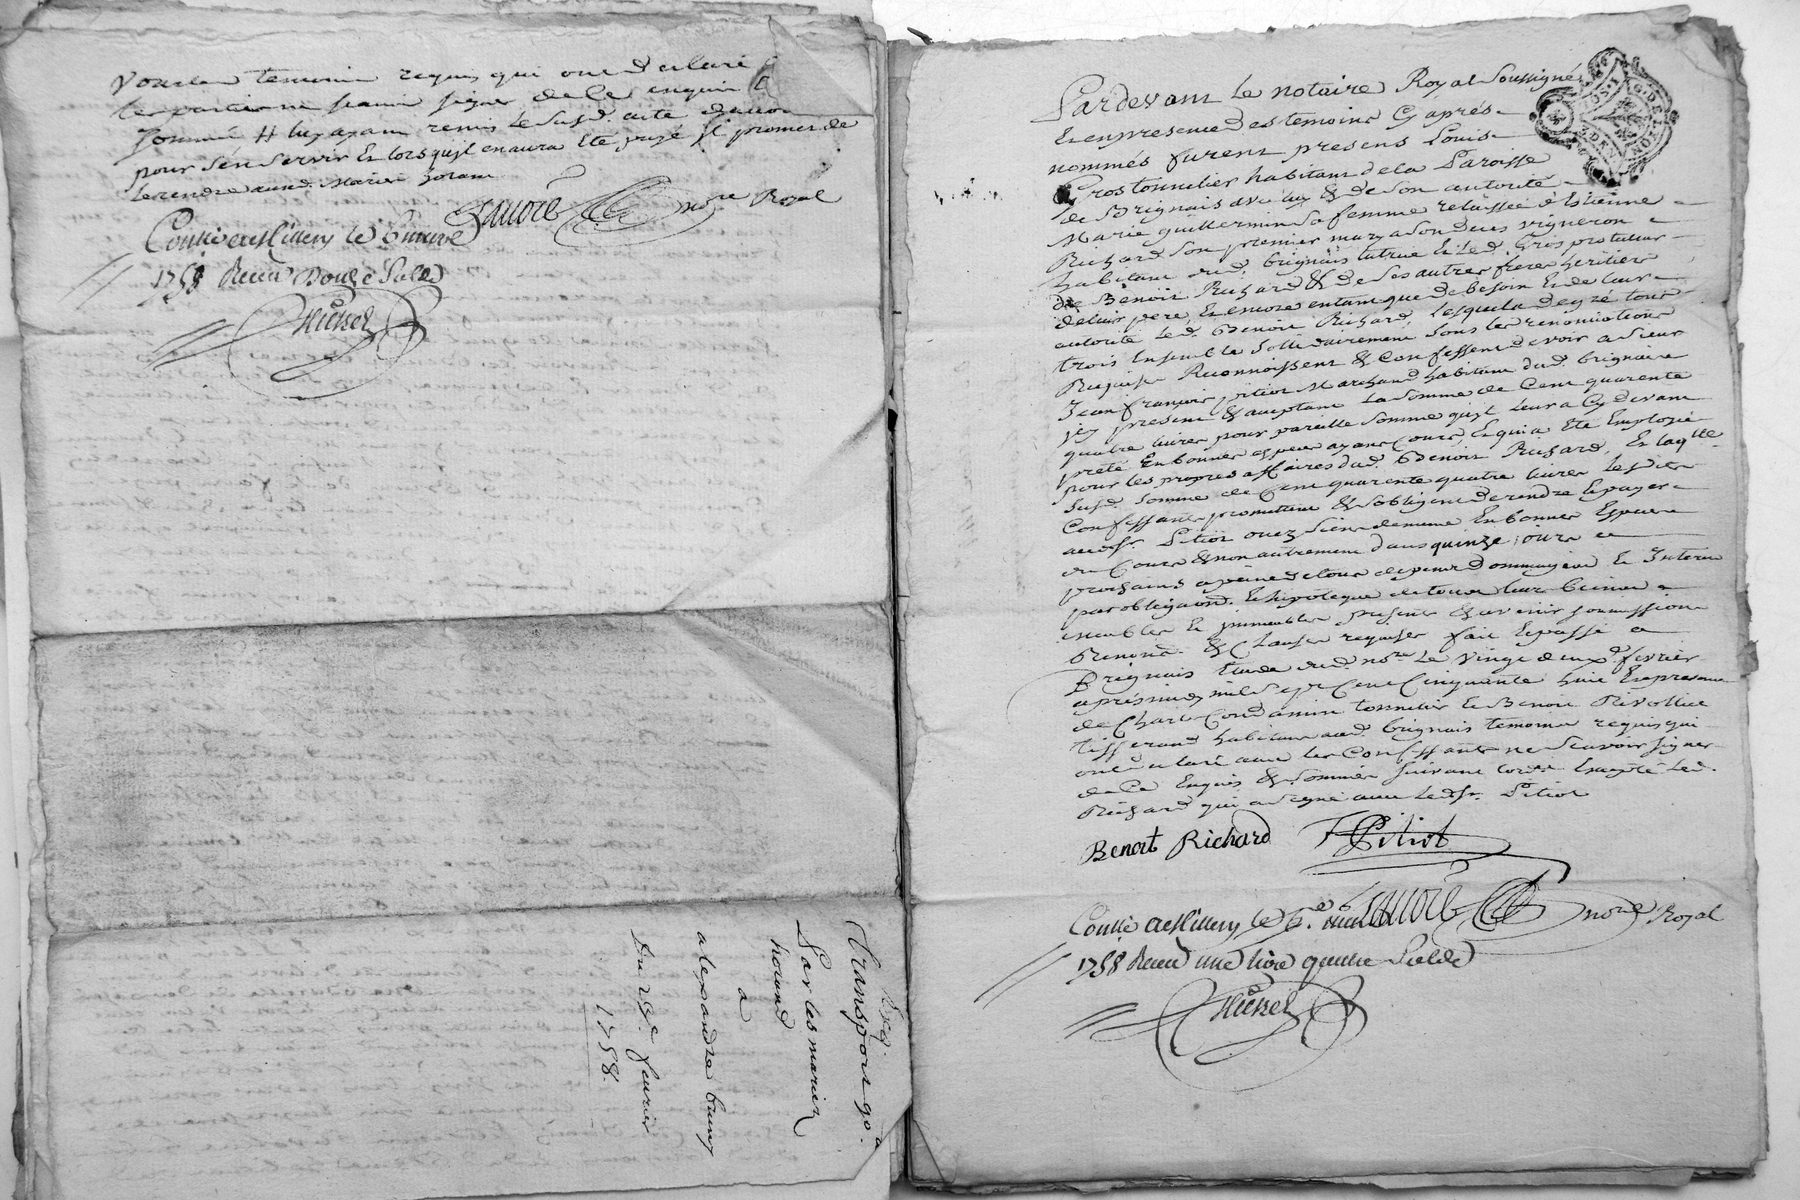 temoins requis qui ont declaré
les parties ne scavoir signer de ce enquis
sommé # luy ayant remis le susd. acte
pour s'en servir Et lorsqu'il en aura Eté payé Il promet de
le rendre auxd. Mariez horand
Lavoré no.re Royal
Conllé a St Geny le 6 mars
1758 Receu Douze sols
Transport qo.n
Par les mariez
horand
a
alexandre bruny
Du 22e. feurier
1758.
Pardevant Le notaire Royal Soussigné
Et en presence des temoins Cy aprés
nommés furent presens Louis
Gros tonnelier habitant de la Paroisse
de Brignais avec luy & de son autorité
Marie guillermin sa femme relaissée d'Etienne
Richard son premier mary a son deces vigneron
habitant aud. brignais tutrice Et led. Gros protuteur
de Benoit Richard & de ses autres freres heritiers
de leur pere, Et encore en tant que de besoin Et de leur
autorité Led. Benoit Richard Lesquels de gré tous
trois Ensemble Sollidairement Sous les renonciations
Requises Reconnoissent & Confessent devoir a Sieur
Jean françois pitiot Marchand habitant dud. brignais
icy present & acceptant La Somme de Cent quarente
quatre livres pour pareille Somme qu'il leur a Cy devant
preté En bonnes especes ayant Cours Et qui a Eté Employé
pour les propres affaires dud. Benoit Richard, Et laq.lle
susd. Somme de Cent quarente quatre livres Lesdits
Confessants promettent & s'obligent de rendre Et payer
aud. Sr. Pitiot ou ez siens de meme En bonnes Especes
de Cours & non autrement dans quinze jours
prochains a peine de tous depens Dommages Et Interets
par obligaon. Et hipoteque de tous leurs biens
meubles Et immeubles presents & avenir soumissions
Renonc. & Clauses requises fait Et passé a
Brignais Etude dud. no.re Le vingt deux.e fevrier
aprés midy mil Sept Cent Cinquante huit En presence
de Charle Condamin tonnelier Et Benoit Révollier
tisserand habitants aud. brignais temoins requis qui
ont declaré avec les Confessants ne Scavoir Signer
de Ce Enquis & Sommés suivant l'ord.ce Excepté Led.
Richard qui a Signé avec Led. Sr. Pitiot
Benoit Richard F Pitiot
Lavoré no.re Royal
Conllé a St Geny le 6e. mars
1758 Receu une livre quatre sols